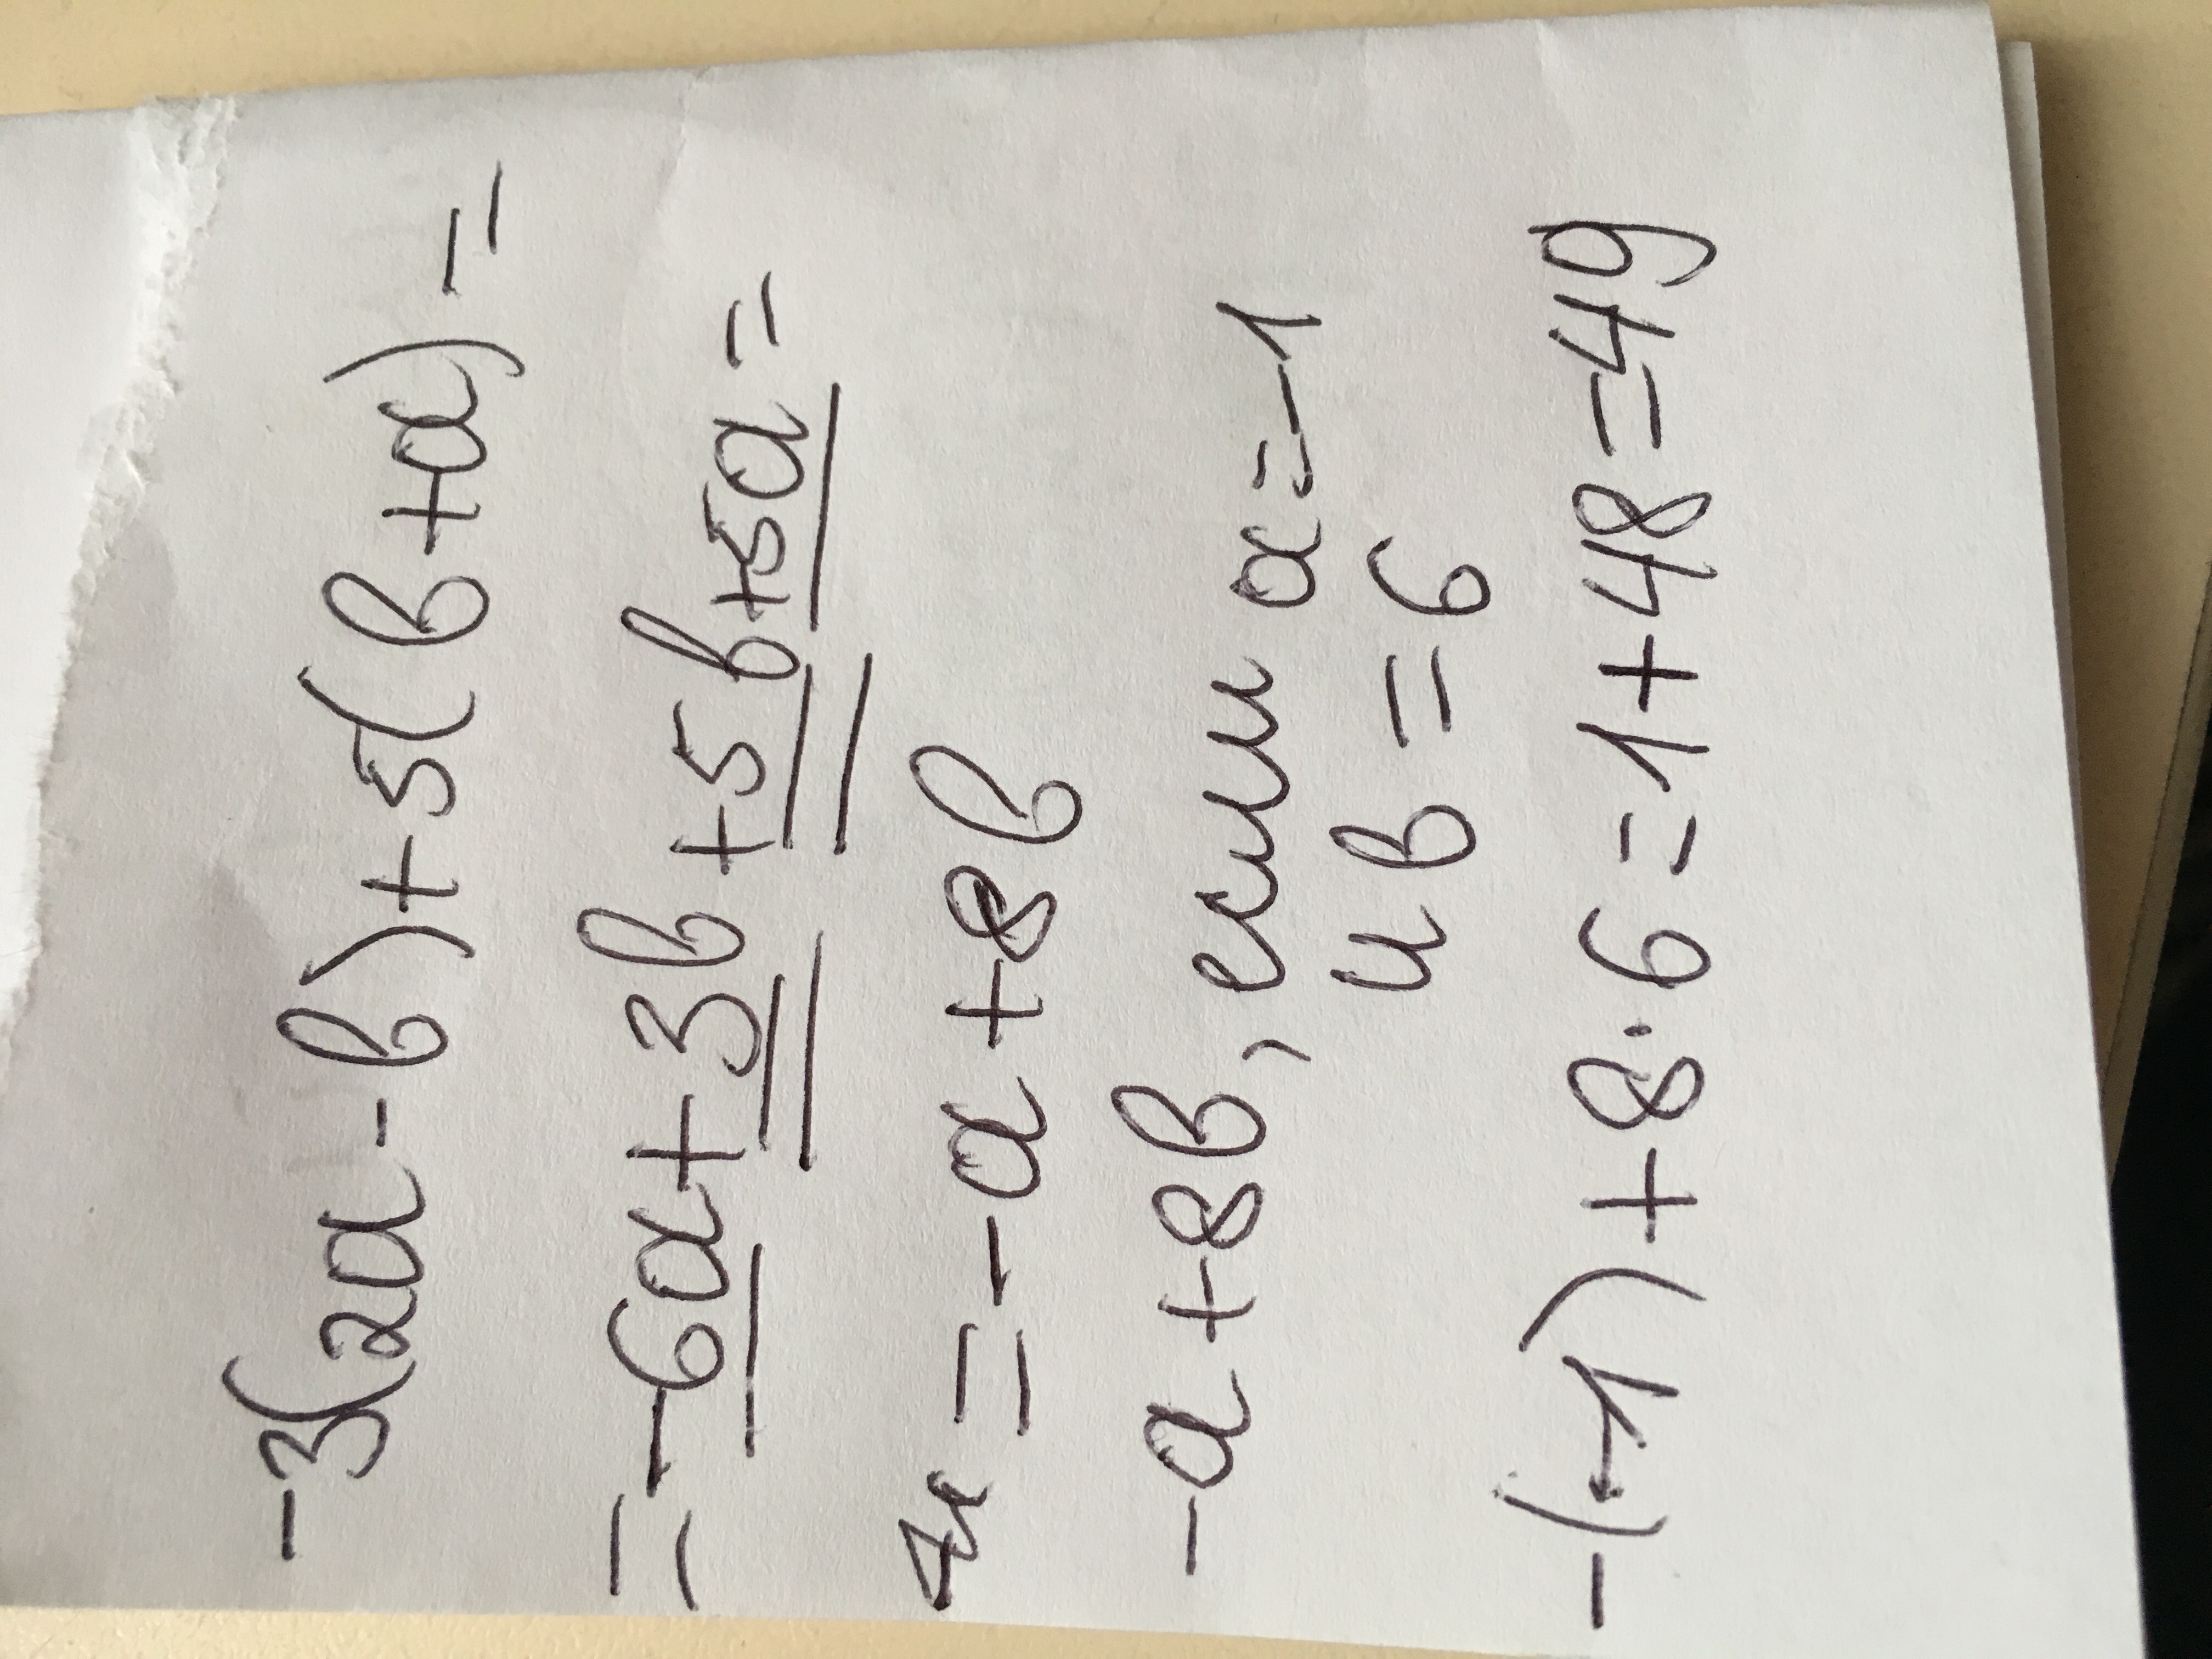 -3(2a-в)+5(в+a)=
=-6a+3в+5в+5a=
=-a+8в
-a+8в, если a=-1
и в=6
-(-1)+8·6=1+48=49